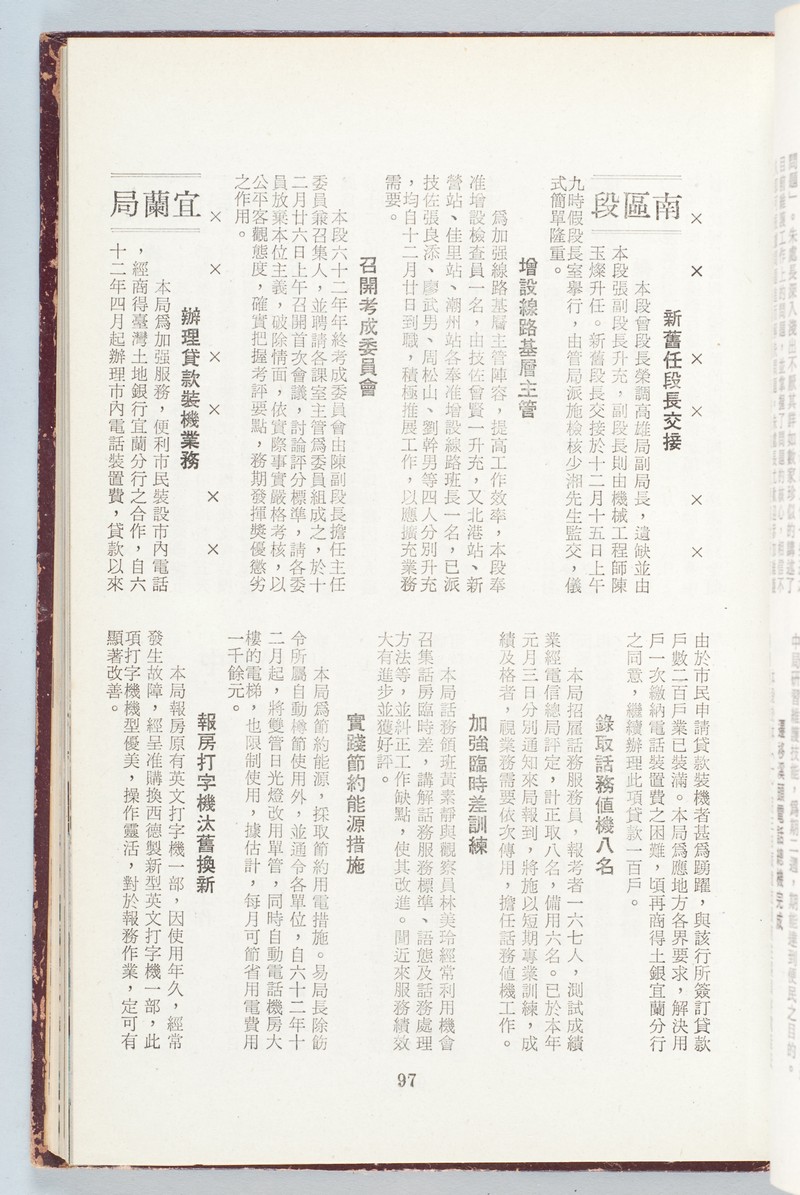 南區段
× × × × × ×
新舊任段長交接
本段曾段長榮調高雄局副局長，遺缺並由
本段張副段長升充，副段長則由機械工程師陳
玉燦升任。新舊段長交接於十二月十五日上午
九時假段長室舉行，由管局派施檢核少湘先生監交，儀
式簡單隆重。
增設線路基層主管
爲加强線路基層主管陣容，提高工作效率，本段奉
准增設檢查員一名，由技佐會賢一升充，又北港站、新
營站、佳里站、潮州站各奉准增設線路班長一名，已派
技佐張良添、廖武男、周松山、劉幹男等四人分別升充
，均自十二月廿日到職，積極推展工作，以應擴充業務
需要。
召開考成委員會
本段六十二年年終考成委員會由陳副段長擔任主任
委員兼召集人，並聘請各課室主管爲委員組成之，於十
二月廿六日上午召開首次會議，討論評分標準，請各委
員放棄本位主義，破除情面，依實際事實嚴格考核，以
公平客觀態度，確實把握考評要點，務期發揮獎優懲劣
之作用。
× × × × × ×
宜蘭局
辦理貸款裝機業務
本局爲加强服務，便利市民裝設市內電話
，經商得臺灣土地銀行宜蘭分行之合作，自六
十二年四月起辦理市內電話裝置費，貸款以來
由於市民申請貸款裝機者甚爲踴躍，與該行所簽訂貸款
戶數二百戶業已裝滿。本局爲應地方各界要求，解決用
戶一次繳納電話裝置費之困難，頃再商得土銀宜蘭分行
之同意，繼續辦理此項貸款一百戶。
錄取話務値機八名
本局招雇話務服務員，報考者一六七人，測試成績
業經電信總局評定，計正取八名，備用六名。已於本年
元月三日分別通知來局報到，將施以短期專業訓練，成
績及格者，視業務需要依次傳用，擔任話務値機工作。
加強臨時差訓練
本局話務領班黃素靜與觀察員林美玲經常利用機會
召集話房臨時差，講解話務服務標準、語態及話務處理
方法等，並糾正工作缺點，使其改進。聞近來服務績效
大有進步並獲好評。
實踐節約能源措施
本局爲節約能源，採取節約用電措施。易局長除飭
令所屬自動樽節使用外，並通令各單位，自六十二年十
二月起，將雙管日光燈改用單管，同時自動電話機房大
樓的電梯，也限制使用，據估計，每月可節省用電費用
一千餘元。
報房打字機汰舊換新
本局報房原有英文打字機一部，因使用年久，經常
發生故障，經呈准購換西德製新型英文打字機一部，此
項打字機機型優美，操作靈活，對於報務作業，定可有
顯著改善。
97